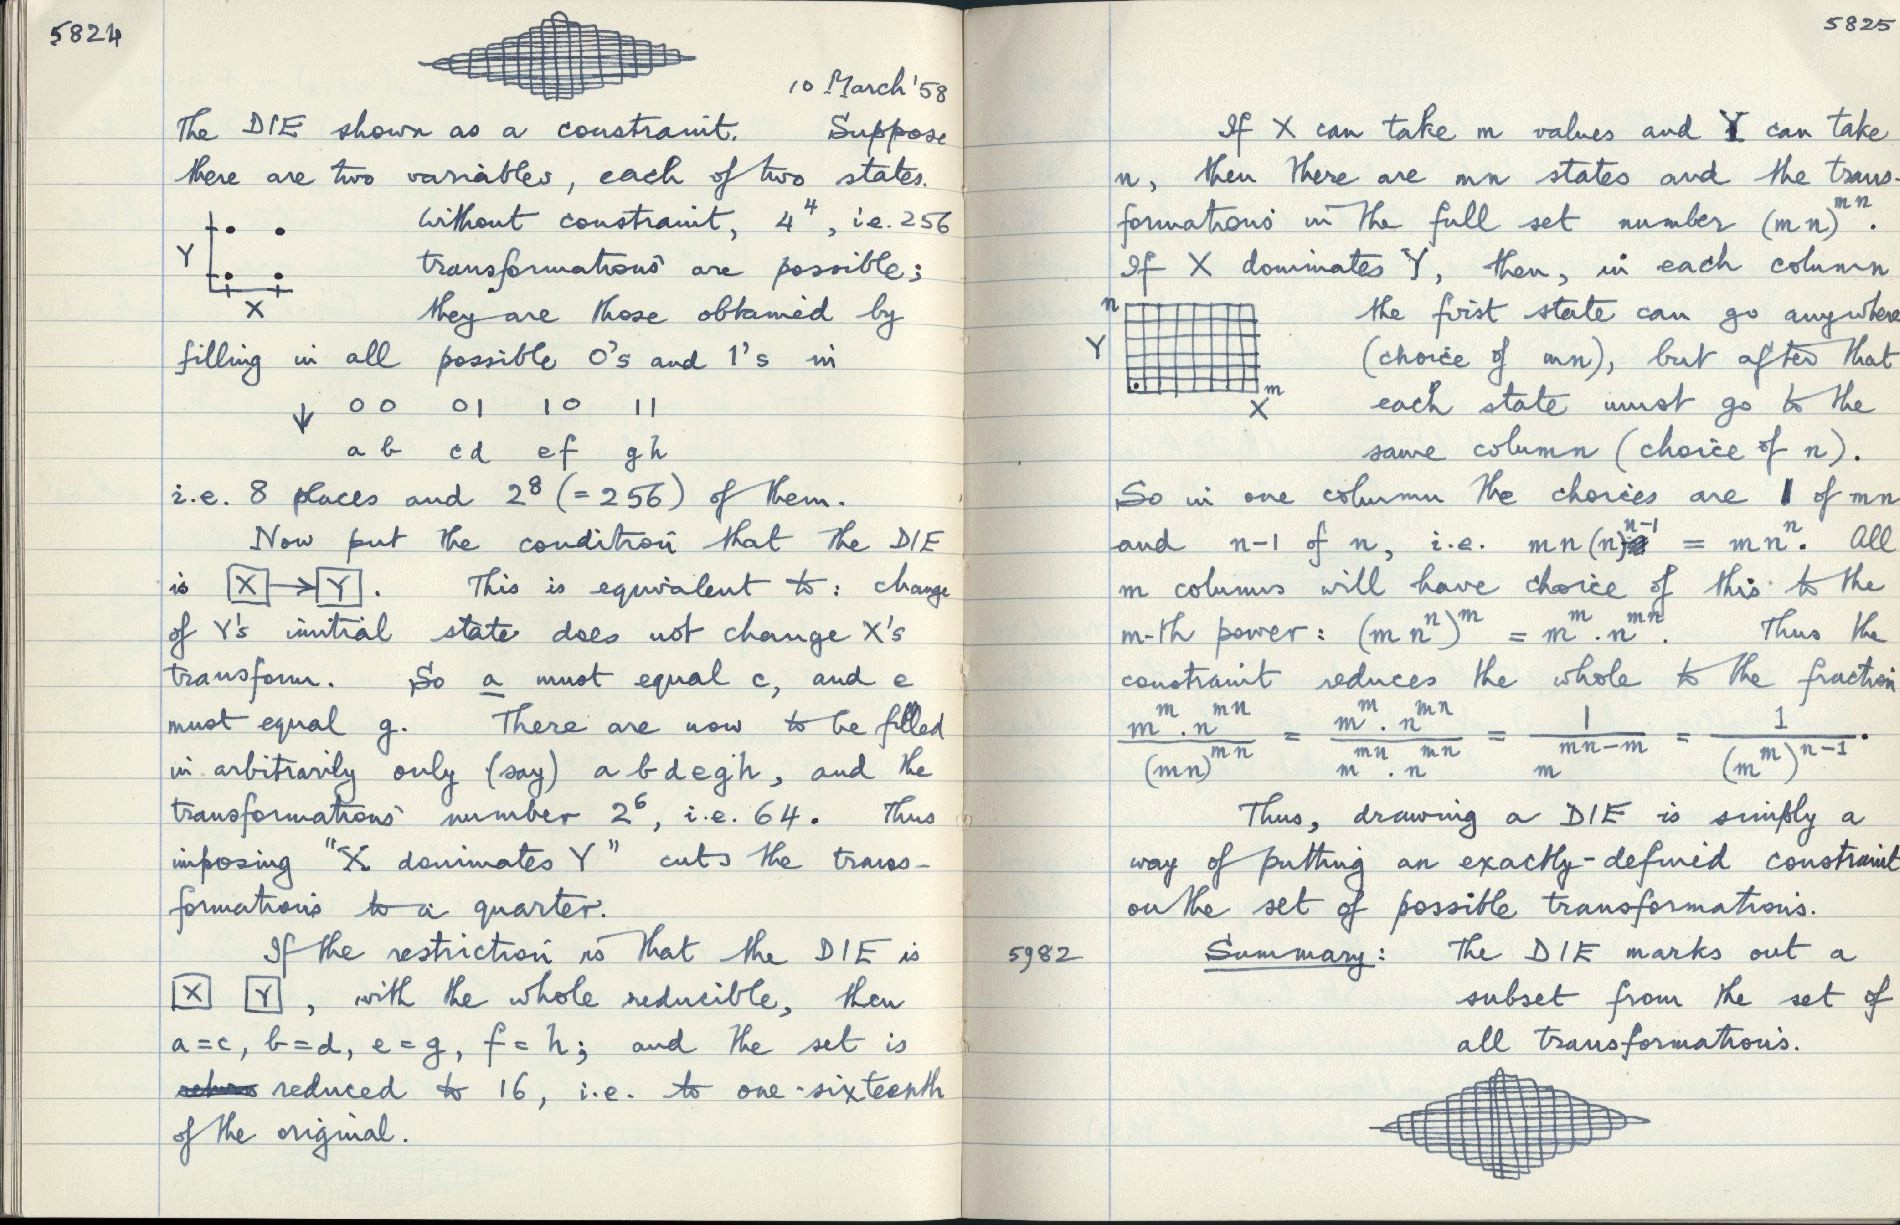 5824
10 March '58
The DIE shown as a constraint. Suppose
there are two variables, each of two states.
Without constraint, 4⁴, i.e. 256
Y
transformations are possible;
X
they are those obtained by
filling in all possible 0's and 1's in
↓ 00 01 10 11
ab cd ef gh
i.e. 8 places and 2⁸ (= 256) of them.
Now put the condition that the DIE
is X → Y. This is equivalent to: change
of Y's initial state does not change X's
transform. So a must equal c, and e
must equal g. There are now to be filled
in arbitrarily only (say) a b d e g h, and the
transformations number 2⁶, i.e. 64. Thus
imposing "X dominates Y" cuts the trans-
formations to a quarter.
If the restriction is that the DIE is
X Y, with the whole reducible, then
a=c, b=d, e=g, f=h; and the set is
reduced to 16, i.e. to one-sixteenth
of the original.
5825
If X can take m values and Y can take
n, then there are mn states and the trans-
formations in the full set number (mn)^mn.
If X dominates Y, then, in each column
n
Y
m
X
the first state can go anywhere
(choice of mn), but after that
each state must go to the
same column (choice of n).
So in one column the choices are 1 of mn
and n-1 of n, i.e. mn(n)^n-1 = mn^n. All
m columns will have choice of this to the
m-th power: (mn^n)^m = m^m . n^mn. Thus the
constraint reduces the whole to the fraction
m^m . n^mn / (mn)^mn = m^m . n^mn / m^mn . n^mn = 1 / m^mn-m = 1 / (m^m)^n-1.
Thus, drawing a DIE is simply a
way of putting an exactly-defined constraint
on the set of possible transformations.
5982
Summary: The DIE marks out a
subset from the set of
all transformations.